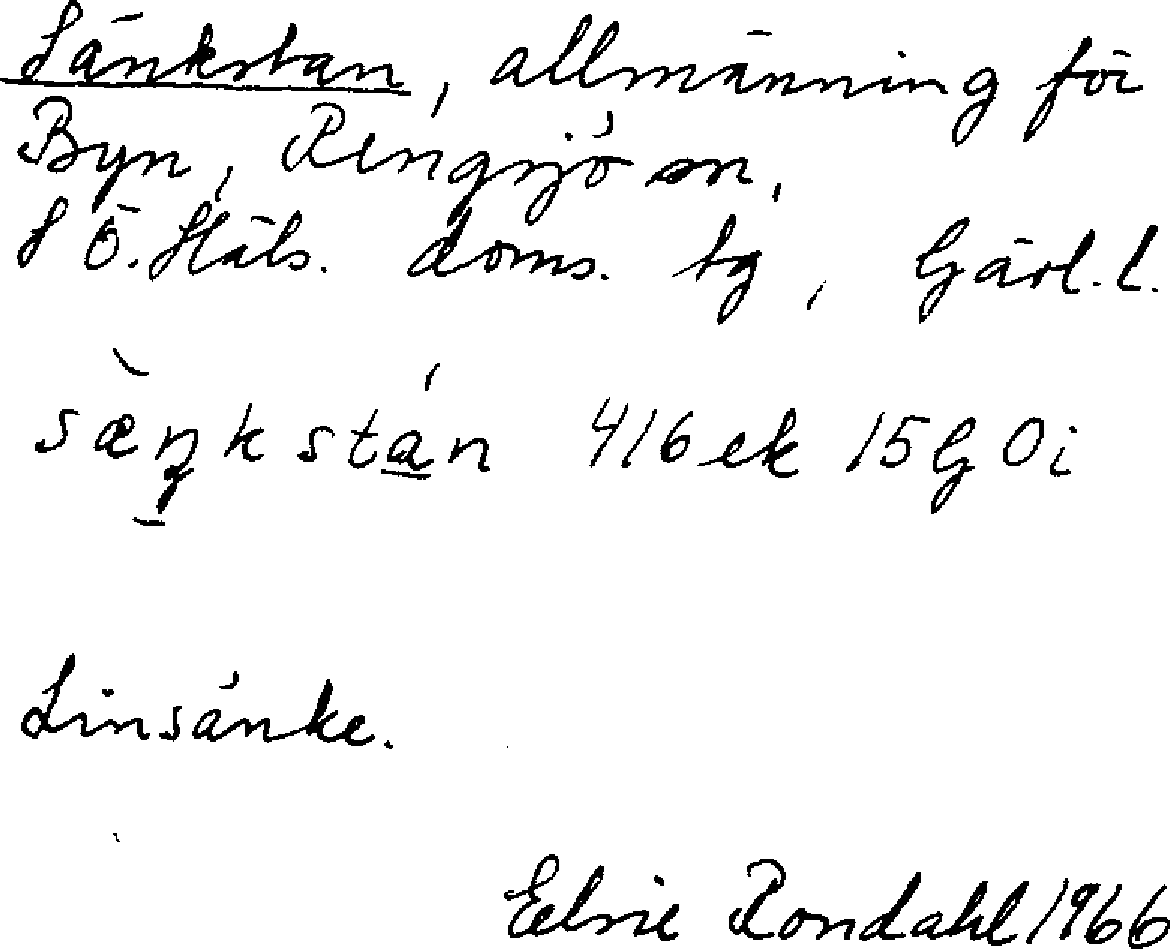 Sänkstan, allmänning för
Byn, Rengsjö sn,
S Ö. Häls. doms. tg, Gävl. l.
sæŋkstan 416ek 15G 0i
Linsänke.
Elsie Rondahl 1966